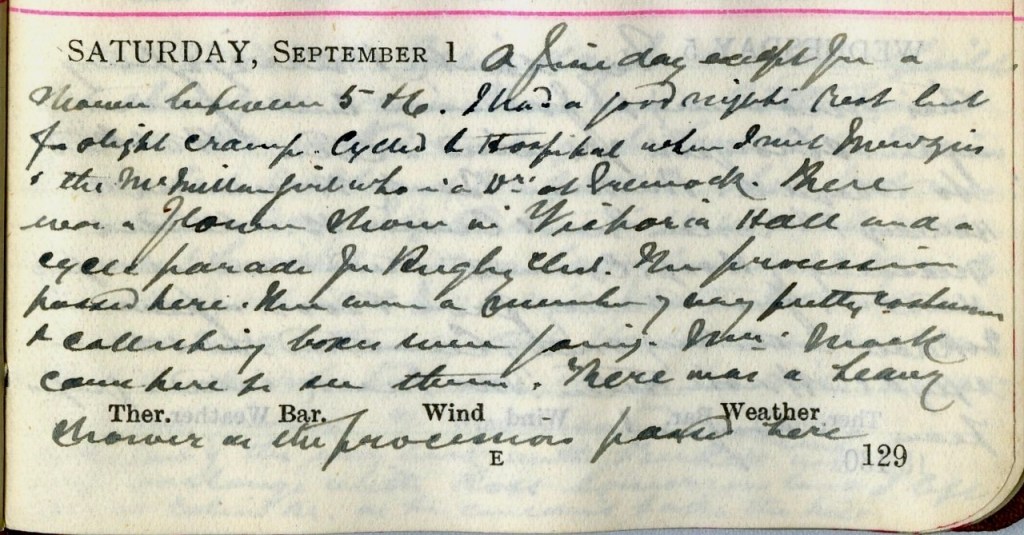 SATURDAY, SEPTEMBER 1 A fine day except for a
shower between 5 & 6. I had a good night's rest but
for slight cramp. Cycled to Hospital when I met
& the McMillan girl who is a Dr. at Greenock. There
was a flower show in Victoria Hall and a
cycle parade for Rugby Club. The procession
passed here. There were a number of very pretty costumes
& collecting boxes were going. Mrs. Mack
came here to see them. There was a heavy
Ther. Bar. Wind Weather
shower as the procession passed here
E 129